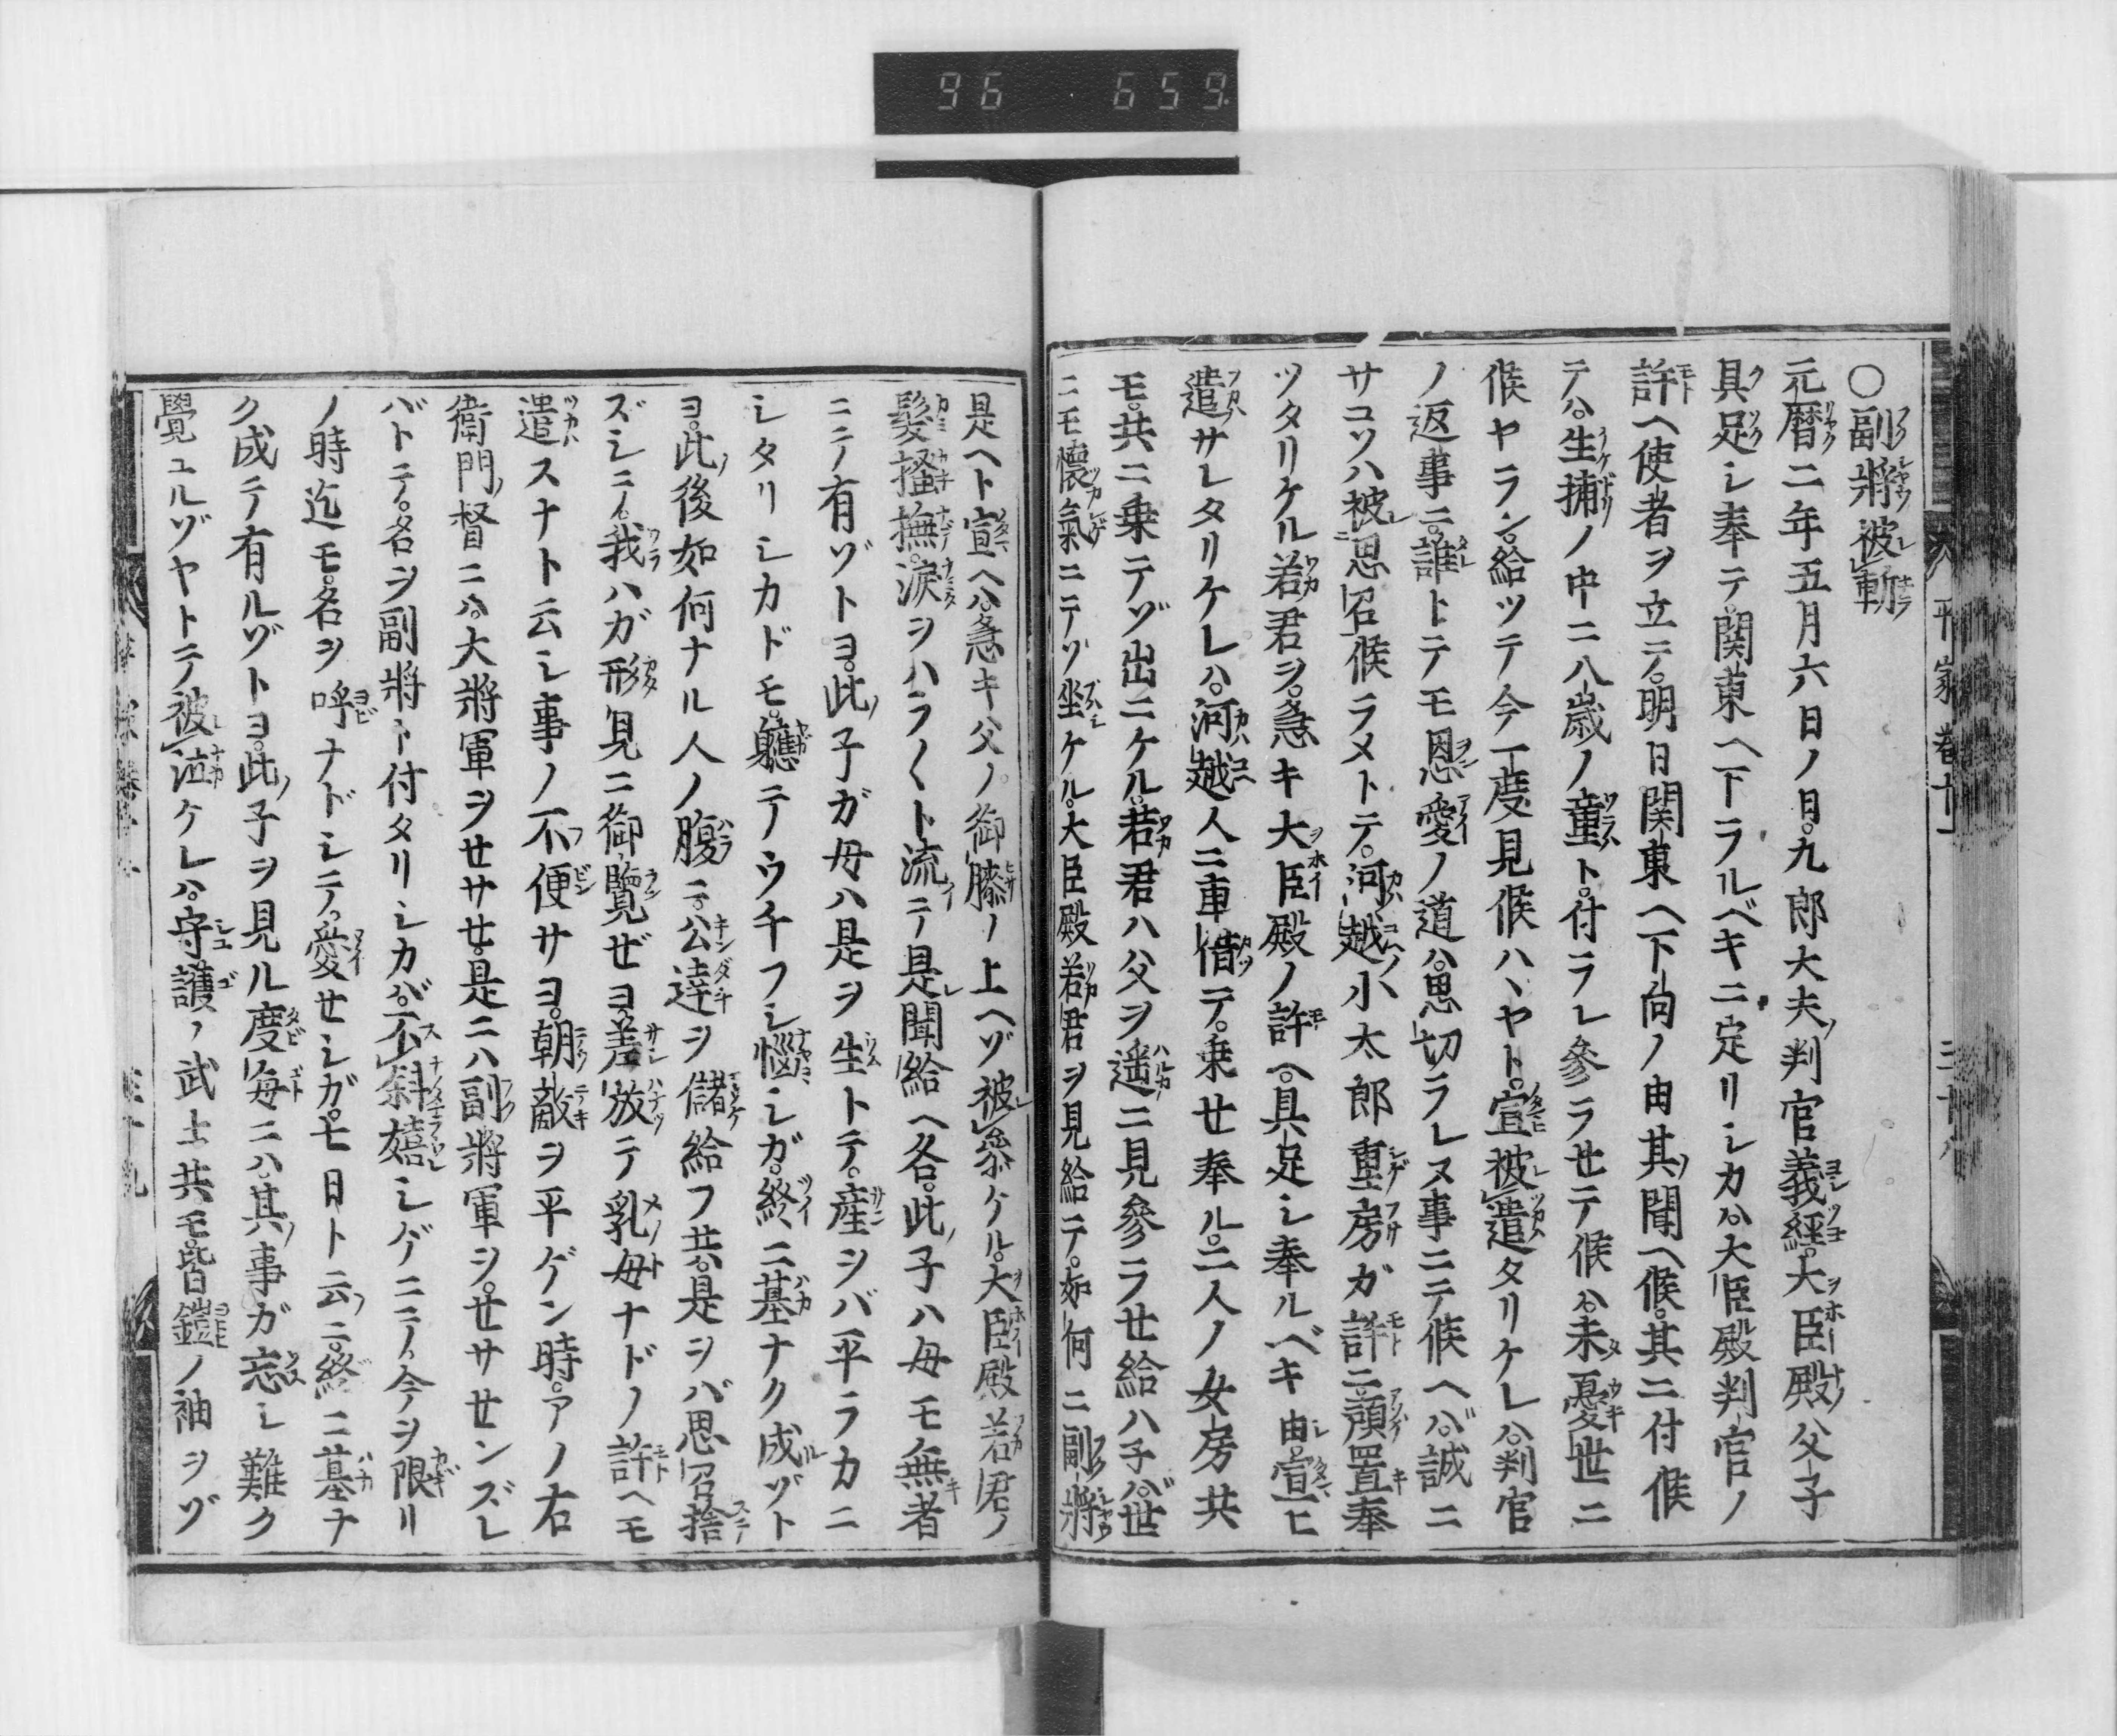 96 659
平家卷十一
三十八
○副將被斬
元暦二年五月六日ノ日。九郎大夫ノ判官義經。大臣殿父子
具足シ奉テ。関東ヘ下ラルベキニ定リシカハ。大臣殿判官ノ
許ヘ使者ヲ立テ。明日関東ヘ下向ノ由其ノ聞ヘ候。其ニ付候
テハ。生捕ノ中ニ八歳ノ童ト。付ラレ參ラせテ候ハ。未憂世ニ
候ヤラン。給ツテ今一度見候ハヽヤト。宣被遣タリケレハ。判官
ノ返事ニ。誰トテモ恩愛ノ道ハ。思切ラレヌ事ニテ候ヘバ。誠ニ
サコソハ被思召候ラメトテ。河越ノ小太郎重房ガ許ニ預置奉
ツタリケル若君ヲ。急キ大臣殿ノ許ヘ。具足シ奉ルベキ由。宣ヒ
遣サレタリケレハ。河越人ニ車借テ。乗せ奉ル。二人ノ女房共
モ。共ニ乗テゾ出ニケル。若君ハ父ヲ遥ニ見參ラせ給ハ子バ。世
ニモ懷氣ニテソ坐ケル。大臣殿若君ヲ見給テ。如何ニ副將
是ヘト宣ヘハ。急キ父ノ御膝ノ上ヘゾ被參ケル。大臣殿若君ノ
髮搔撫。涙ヲハラ〱ト流テ。是聞給ヘ各。此ノ子ハ母モ無者
ニテ有ゾトヨ。此ノ子ガ母ハ是ヲ生トテ。産シバ平ラカニ
シタリシカドモ。軈テウチフシ惱シガ。終ニ墓ナク成ゾト
ヨ。此ノ後如何ナル人ノ腹ニ。公達ヲ儲給フ共。是ヲバ思召捨
ズシテ。我ハガ形見ニ御覽ぜヨ。差放テ乳母ナドノ許ヘモ
遣スナト云シ事ノ不便サヨ。朝敵ヲ平ゲン時。アノ右
衛門ノ督ニハ。大將軍ヲせサせ。是ニハ副將軍ヲ。せサせンズレ
バトテ。名ヲ副將ト付タリシカバ。不斜嬉シゲニテ。今ヲ限リ
ノ時迄モ。名ヲ呼ナドシテ。愛せシガ。七日ト云フニ。終ニ墓ナ
ク成テ有ルゾトヨ。此ノ子ヲ見ル度毎ニハ。其ノ事ガ忘レ難ク
覺ユルゾヤトテ被泣ケレハ。守護ノ武士共モ。皆鎧ノ袖ヲゾ